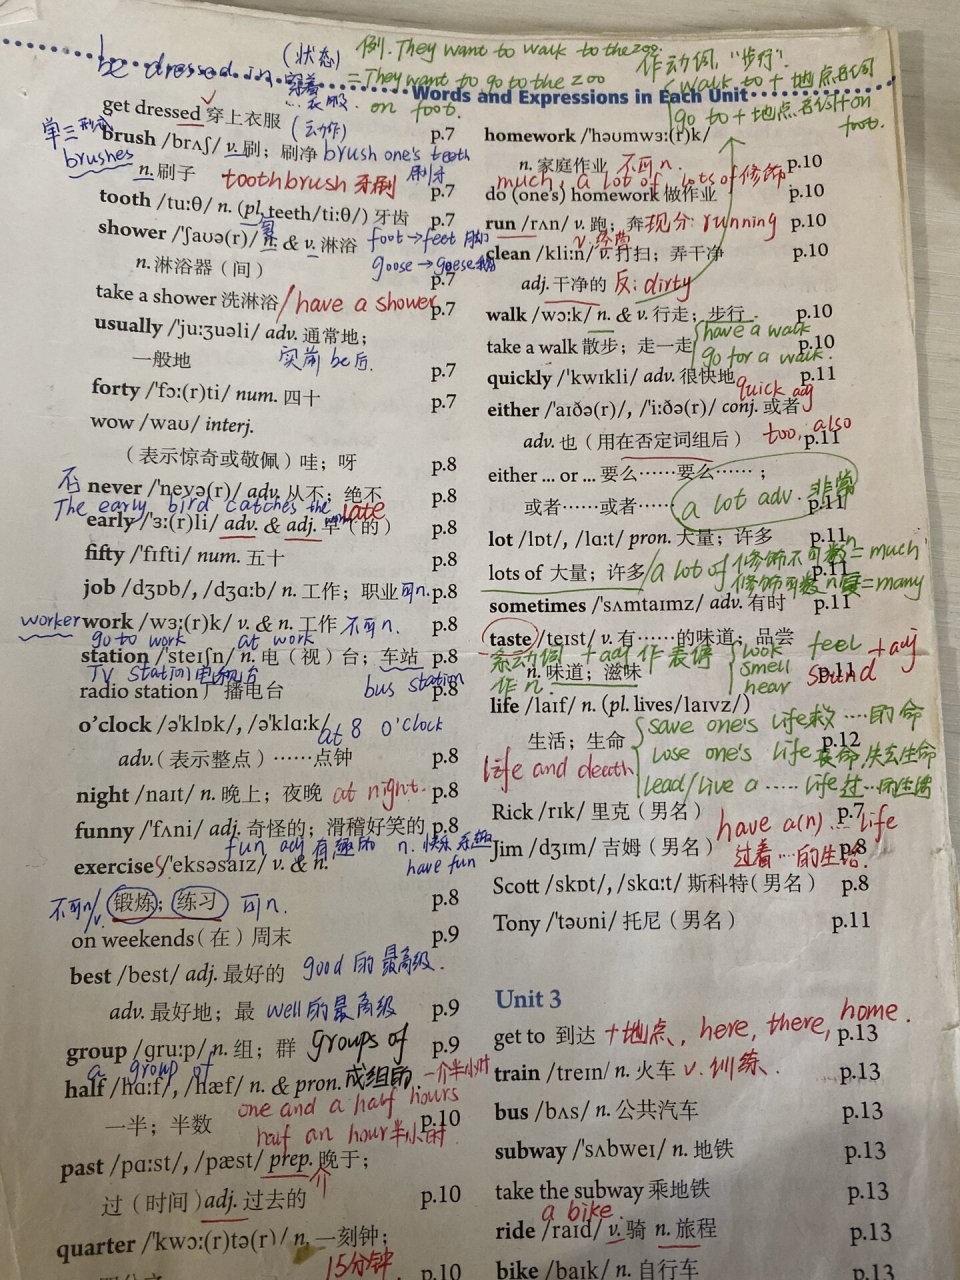 be dressed in (状态) 穿着…衣服
例. They want to walk to the zoo.
= They want to go to the zoo on foot.
作动词, "步行"
walk to + 地点名词
go to + 地点名词 + on foot.
Words and Expressions in Each Unit
get dressed 穿上衣服 (动作) p.7
单三形式 brushes
brush /brʌʃ/ v. 刷；刷净 brush one's teeth 刷牙
n. 刷子 toothbrush 牙刷 p.7
tooth /tuːθ/ n. (pl. teeth/tiːθ/) 牙齿 p.7
foot→feet
goose→geese
shower /'ʃaʊə(r)/ n. & v. 淋浴
n. 淋浴器（间） p.7
take a shower 洗淋浴 / have a shower p.7
usually /'juːʒuəli/ adv. 通常地；
一般地 实前be后. p.7
forty /'fɔː(r)ti/ num. 四十 p.7
wow /waʊ/ interj.
（表示惊奇或敬佩）哇；呀 p.8
never /'nevə(r)/ adv. 从不；绝不 p.8
The early bird catches the worm
late
early /'ɜː(r)li/ adv. & adj. 早（的） p.8
fifty /'fɪfti/ num. 五十 p.8
job /dʒɒb/, /dʒɑːb/ n. 工作；职业 可n. p.8
worker
work /wɜː(r)k/ v. & n. 工作 不可n. p.8
go to work at work
station /'steɪʃn/ n. 电（视）台；车站 p.8
TV station 电视台
radio station 广播电台 bus station p.8
o'clock /ə'klɒk/, /ə'klɑːk/ at 8 o'clock
adv.（表示整点）……点钟 p.8
night /naɪt/ n. 晚上；夜晚 at night. p.8
funny /'fʌni/ adj. 奇怪的；滑稽好笑的 p.8
fun adj 有趣的 n. 快乐 乐趣
have fun
exercise s /'eksəsaɪz/ v. & n.
不可n/v. 锻炼；练习 可n. p.8
on weekends（在）周末 p.9
best /best/ adj. 最好的 good 的最高级.
adv. 最好地；最 well的最高级 p.9
group /gruːp/ n. 组；群 groups of p.9
a group of 成组的
half /hɑːf/, /hæf/ n. & pron. 一个半小时
one and a half hours
一半；半数 p.10
half an hour 半小时
past /pɑːst/, /pæst/ prep. 晚于； 介
过（时间）adj. 过去的 p.10
quarter /'kwɔː(r)tə(r)/ n. 一刻钟；
15分钟 p.10
homework /'həʊmwɜː(r)k/
n. 家庭作业 不可n. p.10
much, a lot of lots of 修饰
do (one's) homework 做作业 p.10
run /rʌn/ v. 跑；奔 现分: running p.10
v. 经营
clean /kliːn/ v. 打扫；弄干净 p.10
adj. 干净的 反: dirty
walk /wɔːk/ n. & v. 行走；步行 p.10
take a walk 散步；走一走 p.10
have a walk
go for a walk.
quickly /'kwɪkli/ adv. 很快地 p.11
quick adj
either /'aɪðə(r)/, /'iːðə(r)/ conj. 或者
adv. 也（用在否定词组后） too, also p.11
either ... or ... 要么……要么……；
或者……或者…… p.11
a lot adv. 非常
lot /lɒt/, /lɑːt/ pron. 大量；许多 p.11
lots of 大量；许多 / a lot of p.11
修饰不可数n = much
修饰可数n复 = many
sometimes /'sʌmtaɪmz/ adv. 有时 p.11
taste /teɪst/ v. 有……的味道；品尝
系动词 + adj 作表语
look feel
smell sound
hear
+ adj
作n. n. 味道；滋味 p.11
life /laɪf/ n. (pl. lives/laɪvz/)
生活；生命 p.12
save one's life 救……的命
lose one's life 丧命, 失去生命
lead/live a ...... life 过…的生活
life and death
have a(n) ... life
过着…的生活.
Rick /rɪk/ 里克（男名） p.7
Jim /dʒɪm/ 吉姆（男名） p.8
Scott /skɒt/, /skɑːt/ 斯科特（男名） p.8
Tony /'təʊni/ 托尼（男名） p.11
Unit 3
get to 到达 +地点, here, there, home. p.13
train /treɪn/ n. 火车 v. 训练. p.13
bus /bʌs/ n. 公共汽车 p.13
subway /'sʌbweɪ/ n. 地铁 p.13
take the subway 乘地铁 p.13
a bike.
ride /raɪd/ v. 骑 n. 旅程 p.13
bike /baɪk/ n. 自行车 p.13